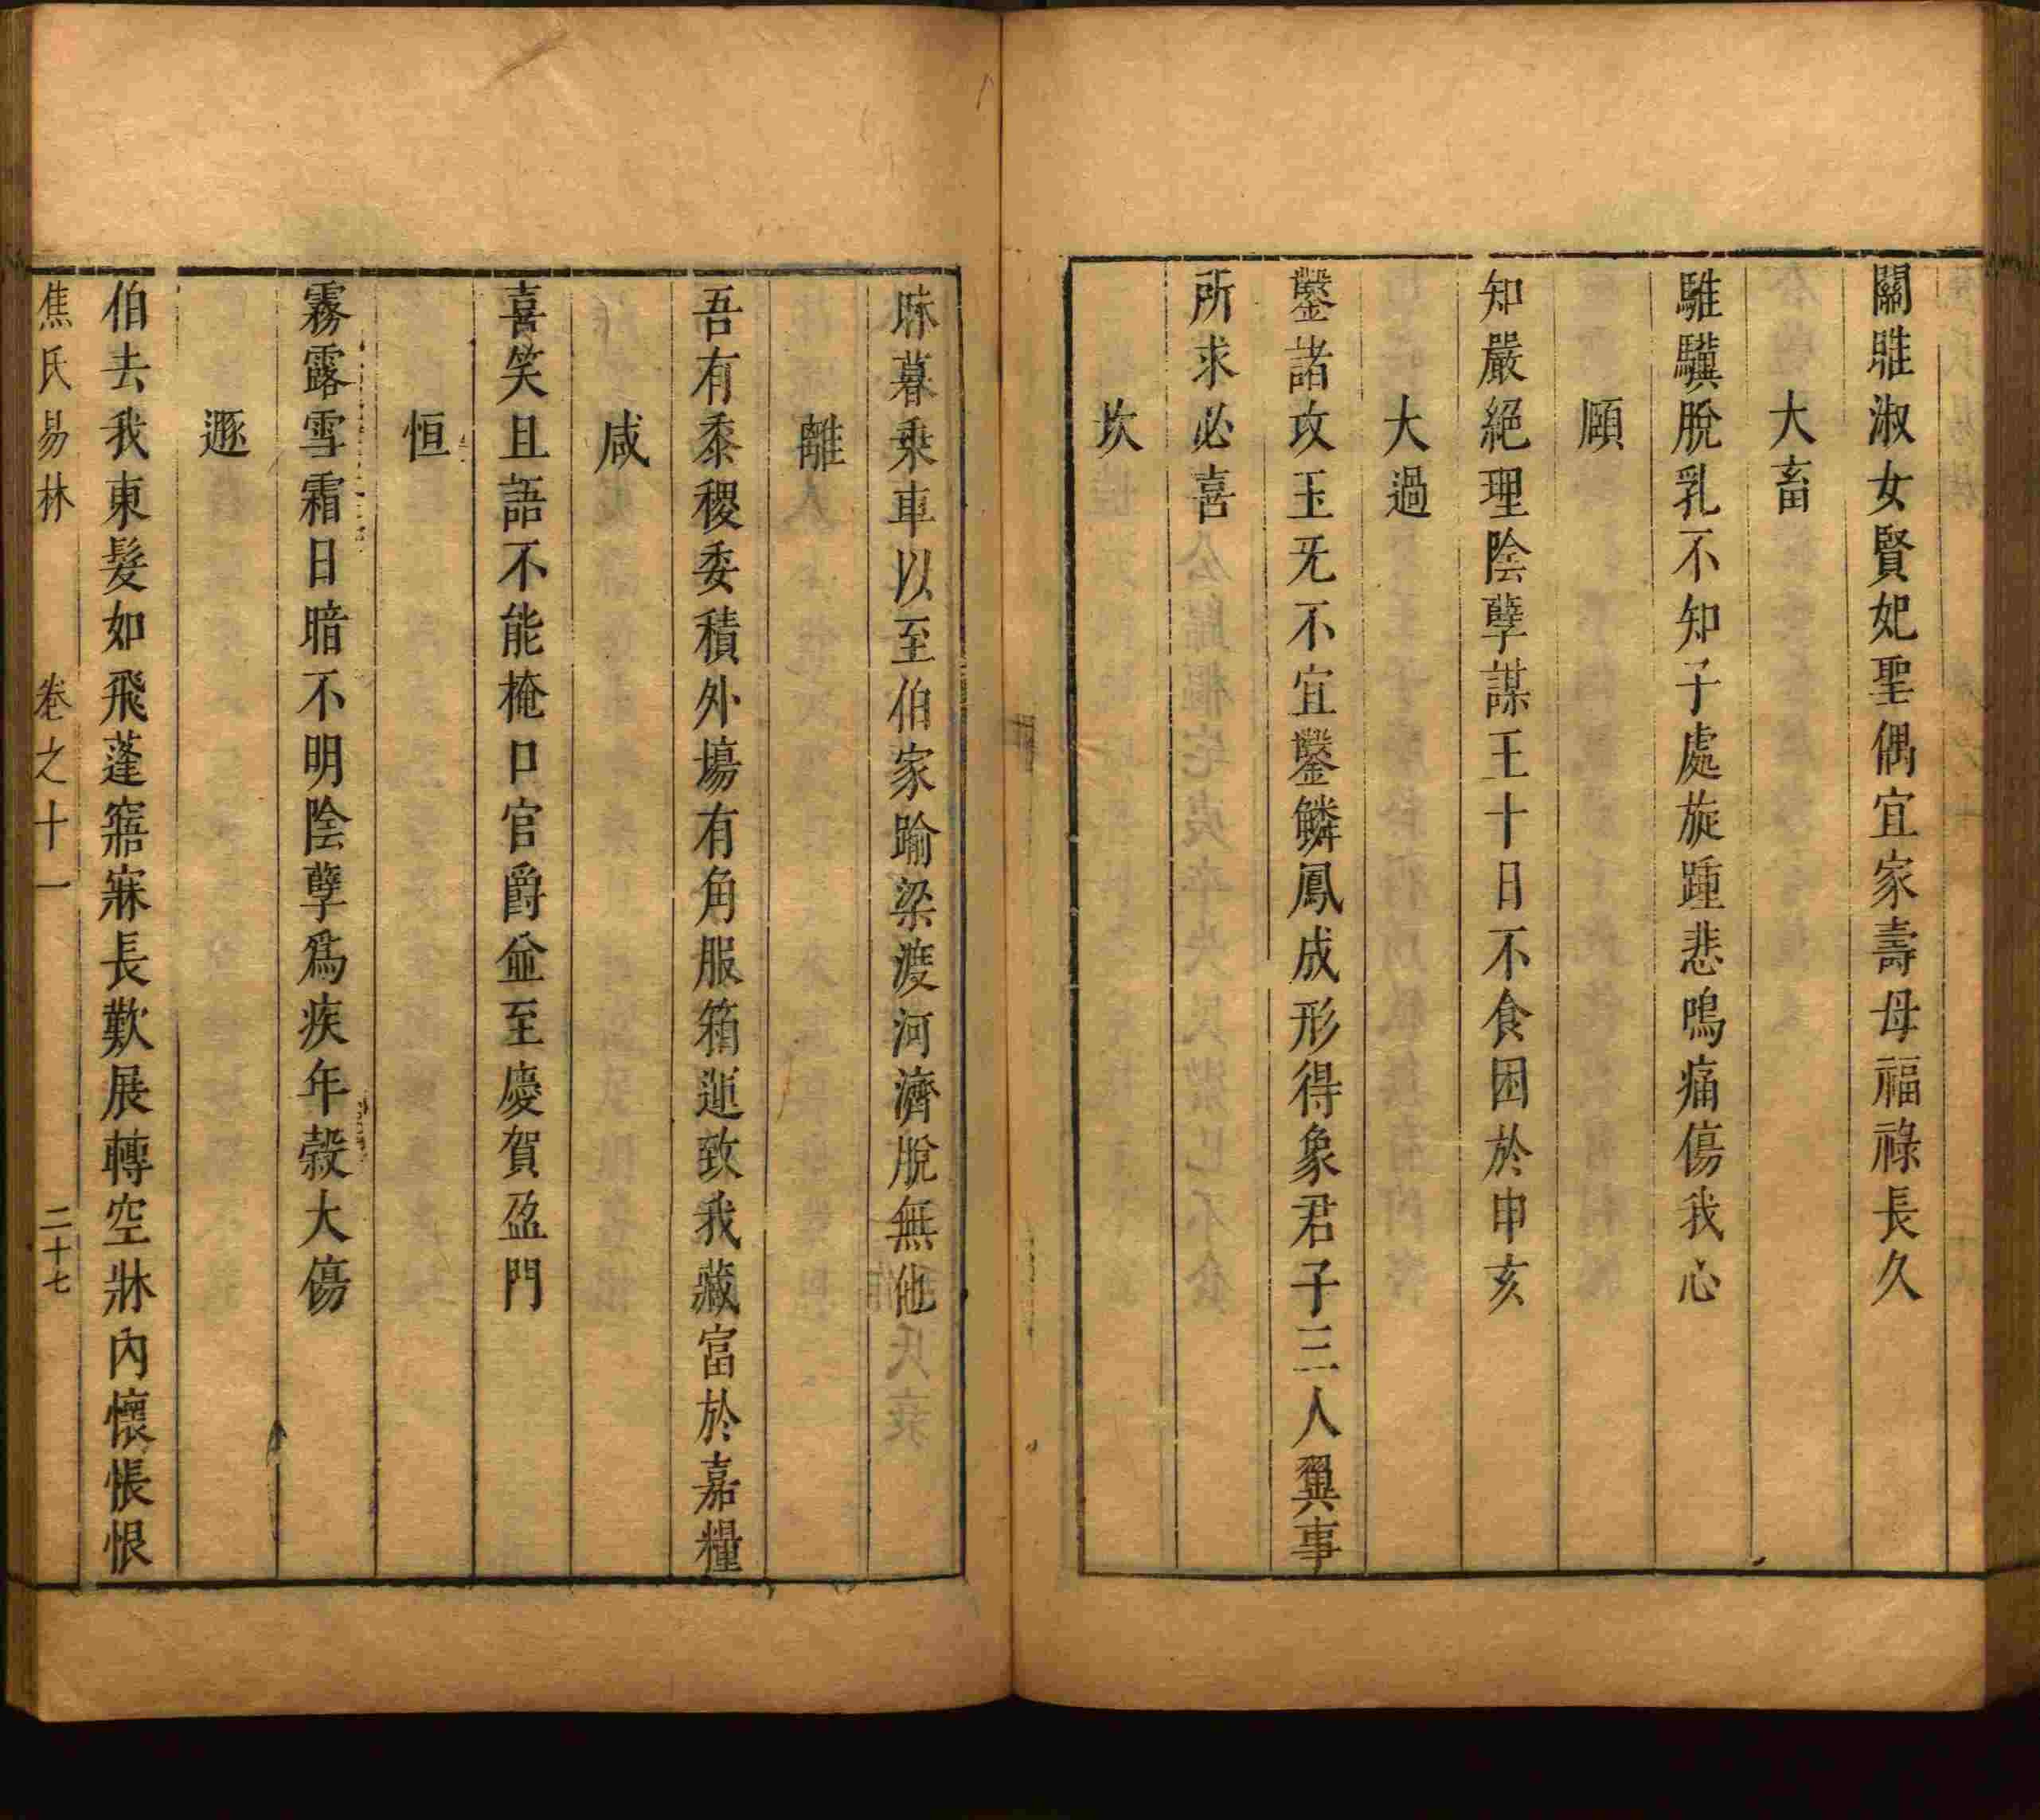 關雎淑女賢妃聖偶宜家壽母福祿長久
大畜
騅驥脫乳不知子處旋踵悲鳴痛傷我心
頤
知嚴絕理陰孽謀王十日不食困於申亥
大過
鑿諸攻玉旡不宜鑿鱗鳳成形得象君子三人翼事
所求必喜
坎
牀暮乗車以至伯家踰梁渡河濟脫無他
離
吾有黍稷委積外場有角服箱運致我藏富於嘉糧
咸
喜笑且語不能掩口官爵並至慶賀盈門
恒
霧露雪霜日暗不明陰孽爲疾年榖大傷
遯
伯去我東髮如飛蓬寤寐長歎展轉空牀內懷悵恨
焦氏易林 卷之十一 二十七